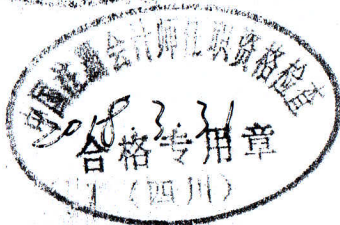 中国注册会计师任职资格检查
2018.3.31
合格专用章
（四川）